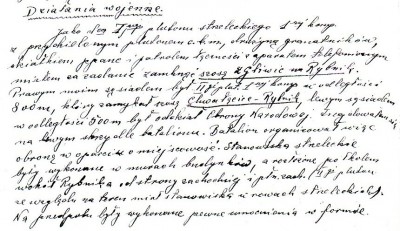 Działania wojenne.
Jako dca I plutonu strzeleckiego 1 komp.
z przydzielonym plutonem c.k.m., drużyną granatników,
działkiem ppanc i patrolem łączności z aparatem telefonicznym
miałem za zadanie zamknąć szosę z Gliwic na Rybnik.
Prawym moim sąsiadem był II plut. 1 komp. w odległości
800 m, który zamykał szosę Chwałęcice - Rybnik, lewym sąsiadem
w odległości 500 m był oddział Obrony Narodowej
na lewym skrzydle batalionu. Batalion organizował więc
obronę w oparciu o miejscowość. Stanowiska strzeleckie
były wykonane w murach budynków, a rozciągnięte półkolem
wokół Rybnika od strony zachodniej i płn. zach. I pluton
ze względu na teren miał stanowiska w rowach strzeleckich.
Na przedpolu były wykonane pewne umocnienia w formie